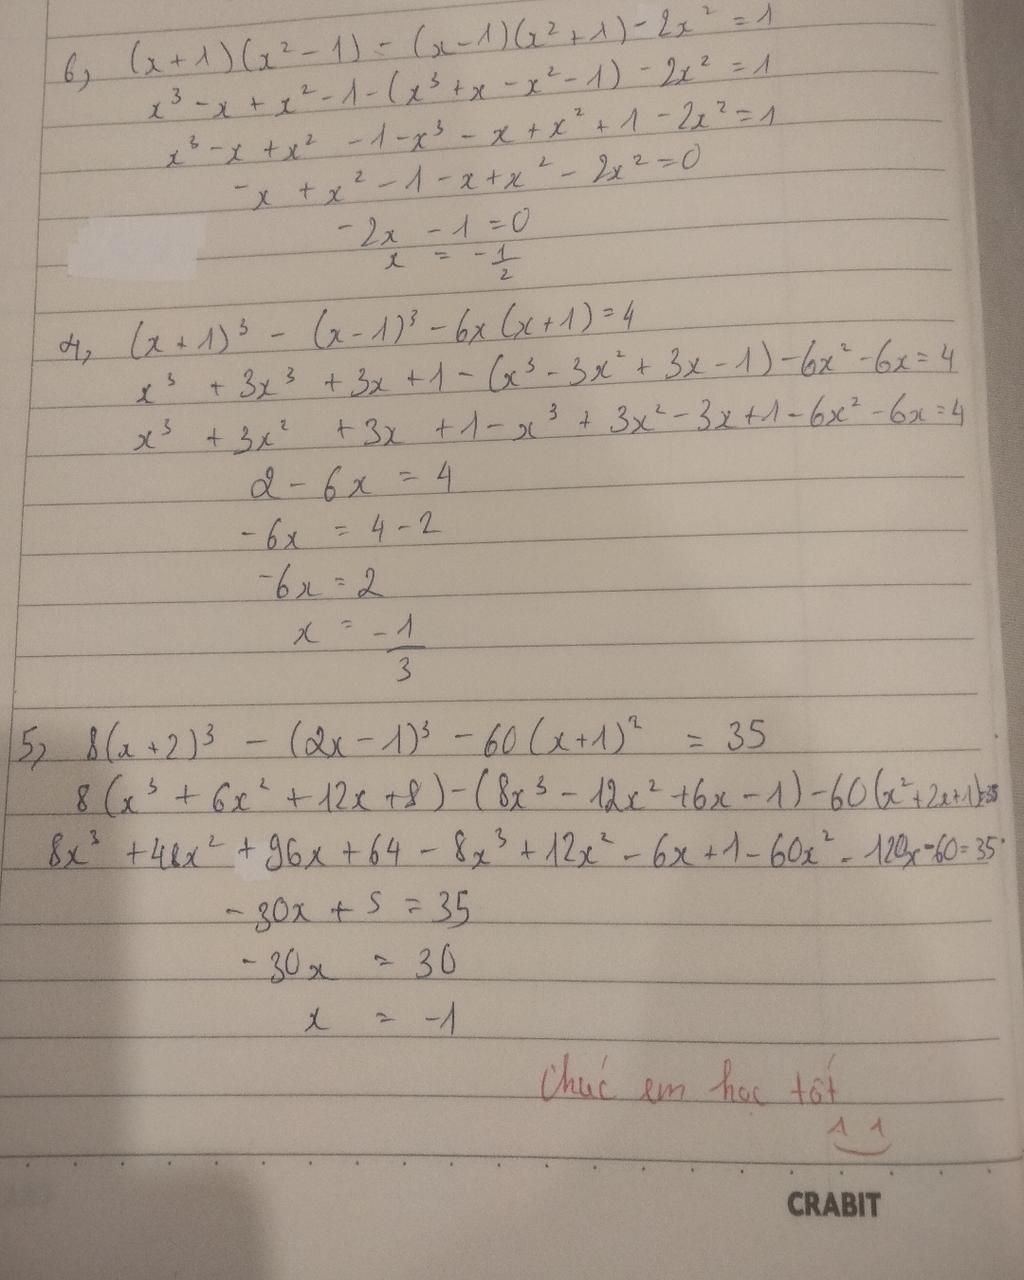 6, (x+1)(x² - 1) - (x-1)(x² + 1) - 2x² = 1
x³ - x + x² - 1 - (x³ + x - x² - 1) - 2x² = 1
x³ - x + x² - 1 - x³ - x + x² + 1 - 2x² = 1
- x + x² - 1 - x + x² - 2x² = 0
- 2x - 1 = 0
x = - 1/2
4, (x+1)³ - (x-1)³ - 6x(x+1) = 4
x³ + 3x³ + 3x + 1 - (x³ - 3x² + 3x - 1) - 6x² - 6x = 4
x³ + 3x² + 3x + 1 - x³ + 3x² - 3x + 1 - 6x² - 6x = 4
2 - 6x = 4
- 6x = 4 - 2
- 6x = 2
x = -1/3
5, 8(x+2)³ - (2x-1)³ - 60(x+1)² = 35
8(x³ + 6x² + 12x + 8) - (8x³ - 12x² + 6x - 1) - 60(x² + 2x + 1) = 35
8x³ + 48x² + 96x + 64 - 8x³ + 12x² - 6x + 1 - 60x² - 120x - 60 = 35
- 30x + 5 = 35
- 30x = 30
x = -1
Chúc em học tốt
CRABIT